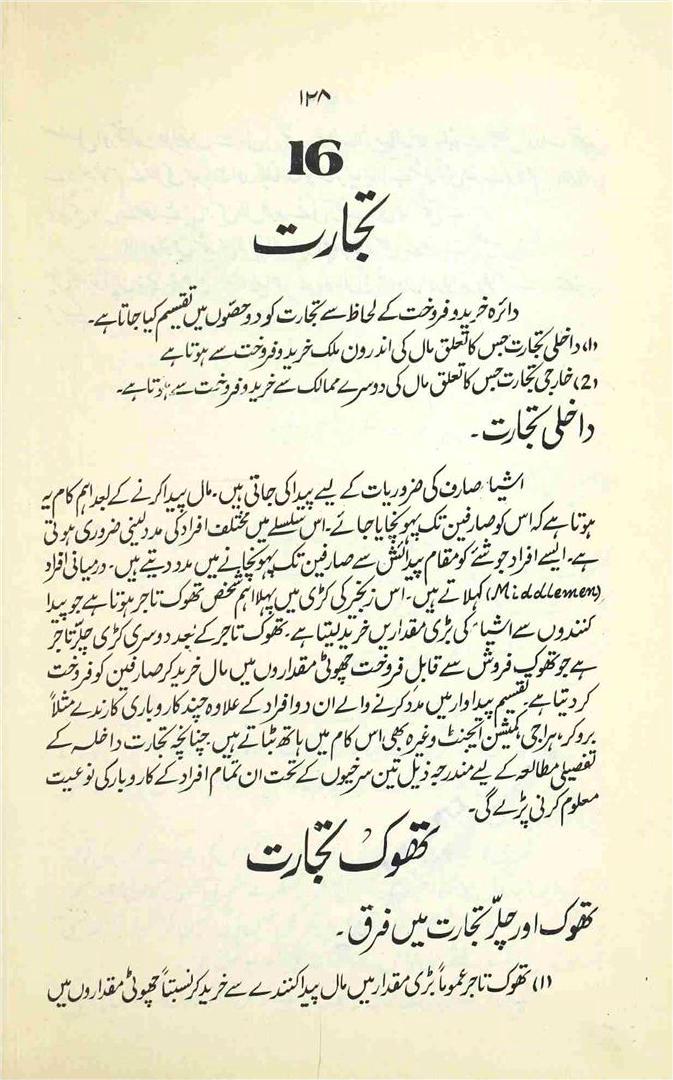 ۱۲۸
16
تجارت
دائرہ خرید و فروخت کے لحاظ سے تجارت کو دو حصّوں میں تقسیم کیا جاتا ہے۔
(۱) داخلی تجارت جس کا تعلق مال کی اندرون ملک خرید و فروخت سے ہوتا ہے
(2) خارجی تجارت جس کا تعلق مال کی دوسرے ممالک سے خرید و فروخت سے ہوتا ہے۔
داخلی تجارت۔
اشیاء صارف کی ضروریات کے لیے پیدا کی جاتی ہیں۔ مال پیدا کرنے کے بعد اہم کام یہ
ہوتا ہے کہ اس کو صارفین تک پہونچایا جائے۔ اس سلسلے میں مختلف افراد کی مدد لینی ضروری ہوتی
ہے۔ ایسے افراد جو شئے کو مقام پیدائش سے صارفین تک پہونچانے میں مدد دیتے ہیں۔ درمیانی افراد
(Middlemen) کہلاتے ہیں۔ اس زنجیر کی کڑی میں پہلا اہم شخص تھوک تاجر ہوتا ہے جو پیدا
کنندوں سے اشیاء کی بڑی مقداریں خرید لیتا ہے۔ تھوک تاجر کے بعد دوسری کڑی چلّر تاجر
ہے جو تھوک فروش سے قابلِ فروخت چھوٹی مقداروں میں مال خرید کر صارفین کو فروخت
کر دیتا ہے۔ تقسیم پیداوار میں مدد کرنے والے ان دو افراد کے علاوہ چند کاروباری کارندے مثلاً
بروکر، ہراجی، کمیشن ایجنٹ وغیرہ بھی اس کام میں ہاتھ بٹاتے ہیں۔ چنانچہ تجارت داخلہ کے
تفصیلی مطالعہ کے لیے مندرجہ ذیل تین سرخیوں کے تحت ان تمام افراد کے کاروبار کی نوعیت
معلوم کرنی پڑے گی۔
تھوک تجارت
تھوک اور چلّر تجارت میں فرق۔
(۱) تھوک تاجر عموماً بڑی مقدار میں مال پیدا کنندے سے خرید کر نسبتاً چھوٹی مقداروں میں